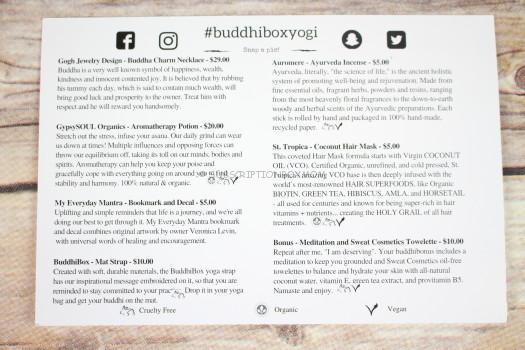 #buddhiboxyogi
Snap a pic!
Gogh Jewelry Design - Buddha Charm Necklace - $29.00
Buddha is a very well known symbol of happiness, wealth,
kindness and innocent contented joy. It is believed that by rubbing
his tummy each day, which is said to contain much wealth, will
bring good luck and prosperity to the owner. Treat him with
respect and he will reward you handsomely.
GypsySOUL Organics - Aromatherapy Potion - $20.00
Stretch out the stress, infuse your asana. Our daily grind can wear
us down at times! Multiple influences and opposing forces can
throw our equilibrium off, taking its toll on our minds, bodies and
spirits. Aromatherapy can help you keep your poise and
gracefully cope with everything going on around you to find
stability and harmony. 100% natural & organic.
My Everyday Mantra - Bookmark and Decal - $5.00
Uplifting and simple reminders that life is a journey, and we're all
doing our best to get through it. My Everyday Mantra Bookmark
and decal combines original artwork by owner Veronica Levin,
with universal words of healing and encouragement.
BuddhiBox - Mat Strap - $10.00
Created with soft, durable materials, the BuddhiBox yoga strap
has our inspirational message embroidered on it, so that you are
reminded to stay committed to your practice. Drop it in your yoga
bag and get your buddhi on the mat.
Auromere - Ayurveda Incense - $5.00
Ayurveda, literally, "the science of life," is the ancient holistic
system of promoting well-being and rejuvenation. Made from
fine essential oils, fragrant herbs, powders and resins, ranging
from the most heavenly floral fragrances to the down-to-earth
woody and herbal scents of the Ayurvedic preparations. Each
stick is rolled by hand and packaged in 100% hand-made,
recycled paper.
St. Tropica - Coconut Hair Mask - $5.00
This coveted Hair Mask formula starts with Virgin COCONUT
OIL (VCO). Certified Organic, unrefined, and cold pressed, St.
Tropica's amazing VCO base is then deeply infused with the
world's most-renowned HAIR SUPERFOODS, like Organic
BIOTIN, GREEN TEA, HIBISCUS, AMLA, and HORSETAIL
- all used for centuries and known for being super-rich in hair
vitamins + nutrients... creating the HOLY GRAIL of all hair
treatments.
Bonus - Meditation and Sweat Cosmetics Towelette - $10.00
Repeat after me, "I am deserving". Your buddhibonus includes a
meditation to keep you grounded and Sweat Cosmetics oil-free
towelettes to balance and hydrate your skin with all-natural
coconut water, vitamin E, green tea extract, and provitamin B5.
Namaste and enjoy.
Cruelty Free
Organic
Vegan